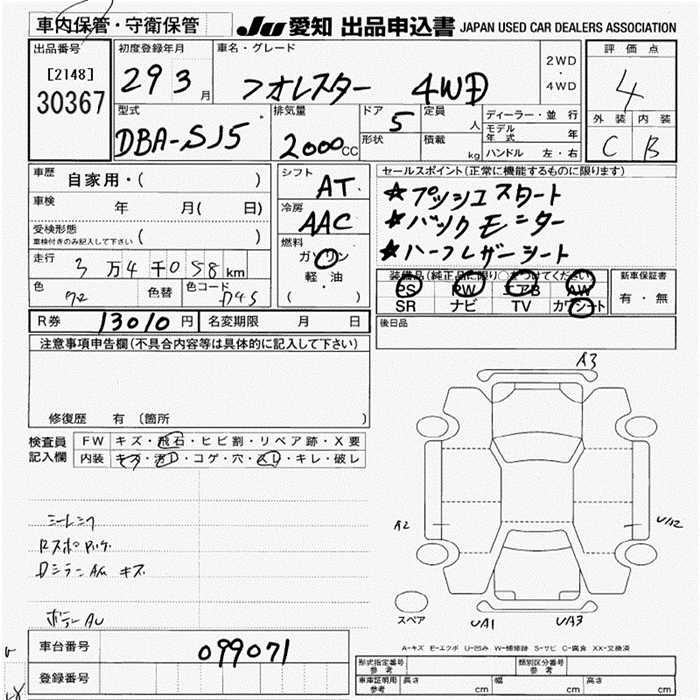 車内保管・守衛保管
JU 愛知 出品申込書 JAPAN USED CAR DEALERS ASSOCIATION
出品番号
[2148]
30367
初度登録年月
29 3 月
車名・グレード
フォレスター 4WD
2WD
・
4WD
評価点
4
外装 内装
C B
型式
DBA-SJ5
排気量
2000 CC
ドア
5
形状
定員
人
積載
kg
ディーラー・並行
モデル年式 年
ハンドル 左・右
車歴 自家用・( )
車検 年 月( 日)
受検形態
車検付きのみ記入して下さい ( )
走行 3万4千058km
色
色替
色コード
シフト
AT
冷房
AAC
燃料
ガソリン
軽・油
( ・ )
セールスポイント(正常に機能するものに限ります)
★プッシュスタート
★バックモニター
★ハーフレザーシート
装備品(純正品に限り○をつけてください)
PS PW エアB AW
SR ナビ TV カワシート
新車保証書
有・無
R券 13010円 名変期限 月 日
後日品
注意事項申告欄(不具合内容等は具体的に記入して下さい)
修復歴 有 (箇所 )
検査員記入欄
FW キズ・飛石・ヒビ割・リペア跡・X要
内装 キズ・汚レ・コゲ・穴・スレ・キレ・破レ
A3
A2
U/A2
スペア
UA1 UA3
A-キズ E-エクボ U-凹み W-補修跡 S-サビ C-腐食 XX-交換済
車台番号 099071
登録番号
形式指定番号 参考
類別区分番号 参考
車庫証明用 参考 長さ cm 幅 cm 高さ cm